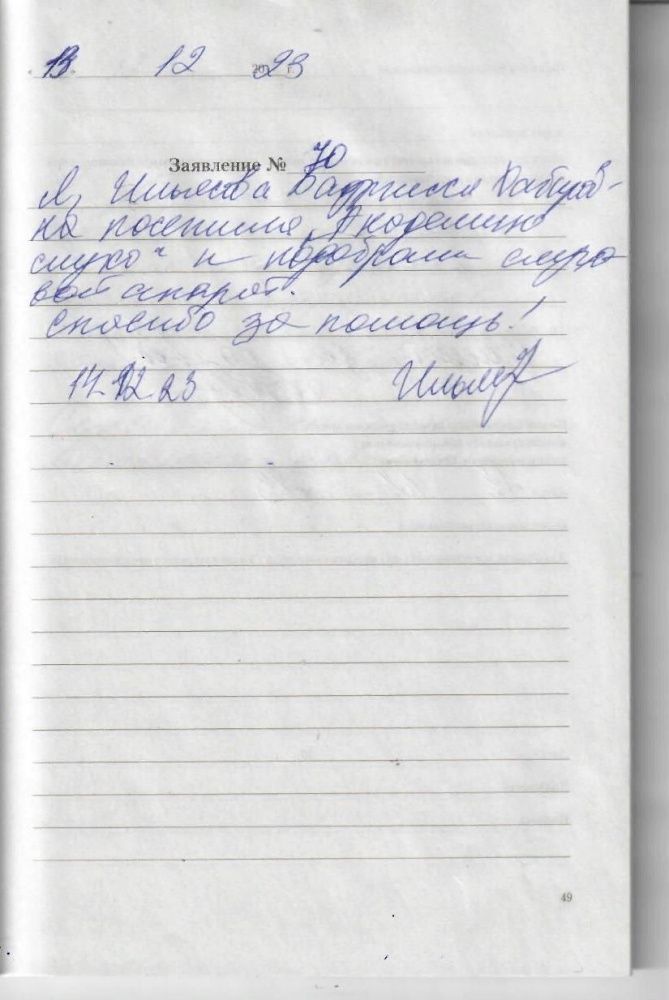 13. 12 2023 г.
Заявление № 70
Я, Ильясова
на посетила „Академию
слуха“ и подобрали слухо
вой апарат.
Спасибо за помощь!
14.12.23
49